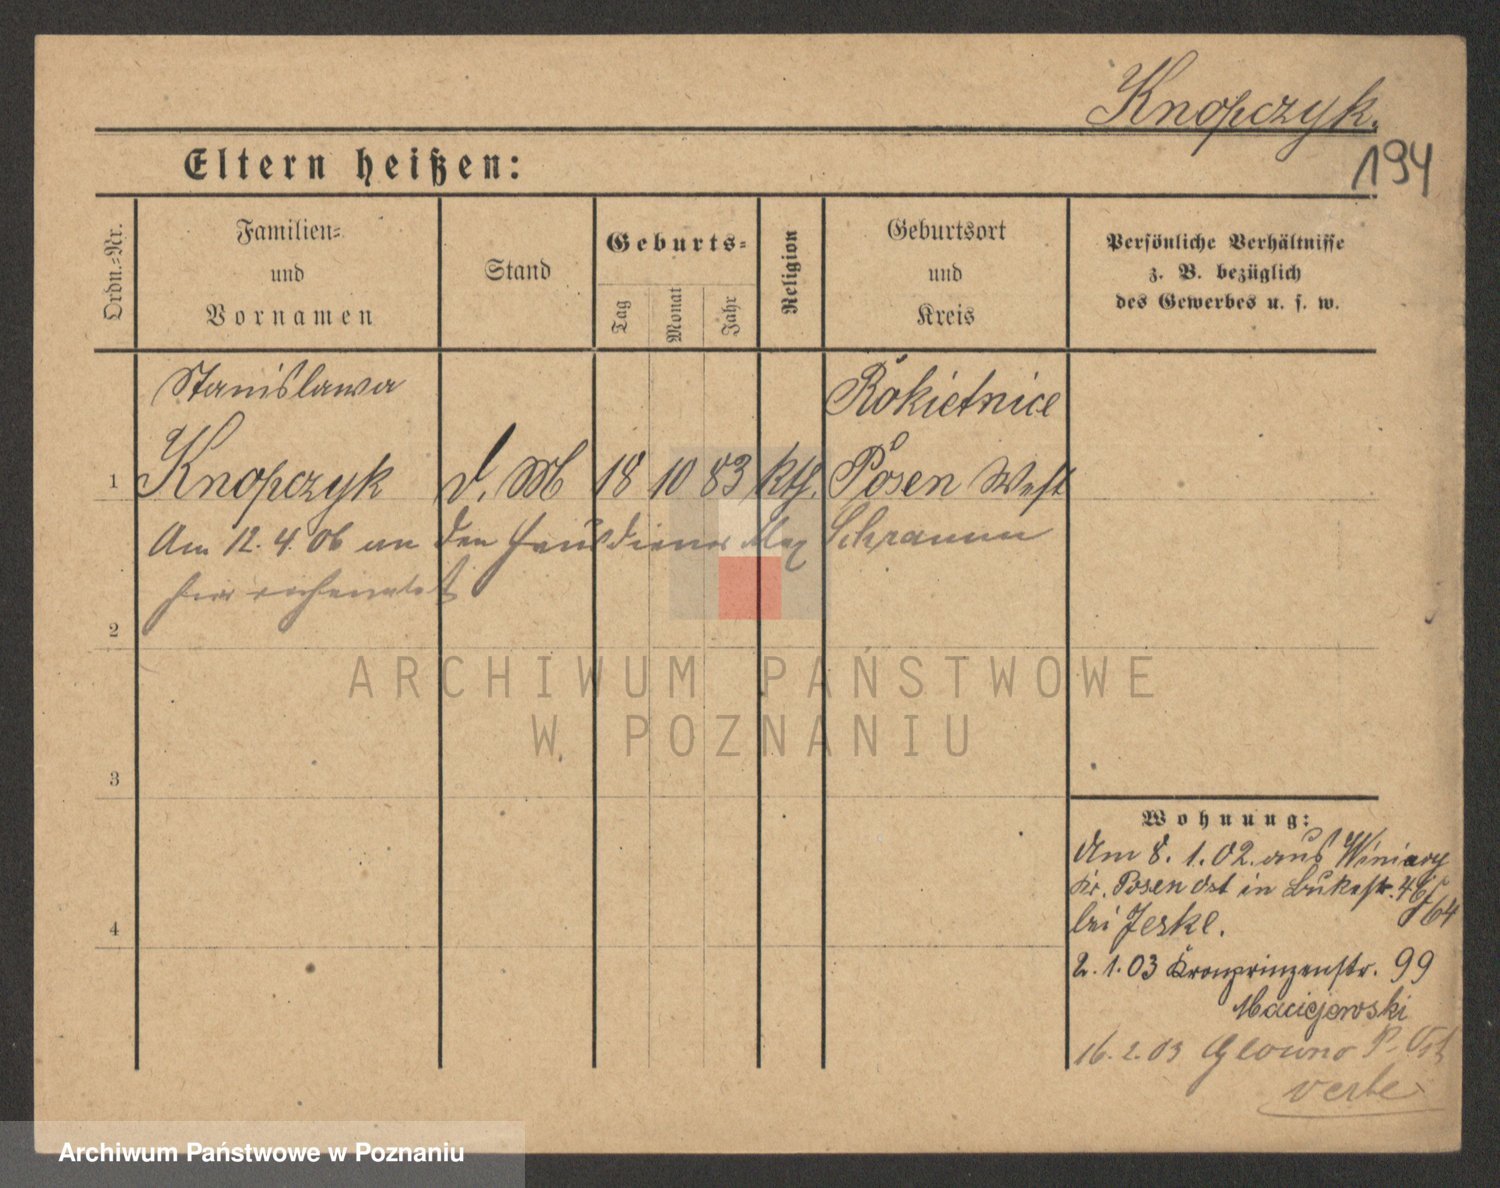 Knopczyk.
194
Eltern heißen:
Ordn.-Nr.
Familien-
und
Vornamen
Stand
Geburts-
Tag
Monat
Jahr
Religion
Geburtsort
und
Kreis
Persönliche Verhältnisse
z. B. bezüglich
des Gewerbes u. s. w.
Stanislawa
Rokietnice
1 Knopczyk d. M 18 10 83 kth. Posen West
Am 12. 4. 06 an den Hausdiener Max Schramm
hier verheiratet
2
ARCHIWUM PAŃSTWOWE
W POZNANIU
3
Wohnung:
Am 8. 1. 02. aus Winiary
Kr. Posen Ost in Bukerstr.
4
bei Jeske.
2. 1. 03 Kronprinzenstr. 99
Maciejewski
16. 2. 03 Glowno P. Ost
Archiwum Państwowe w Poznaniu